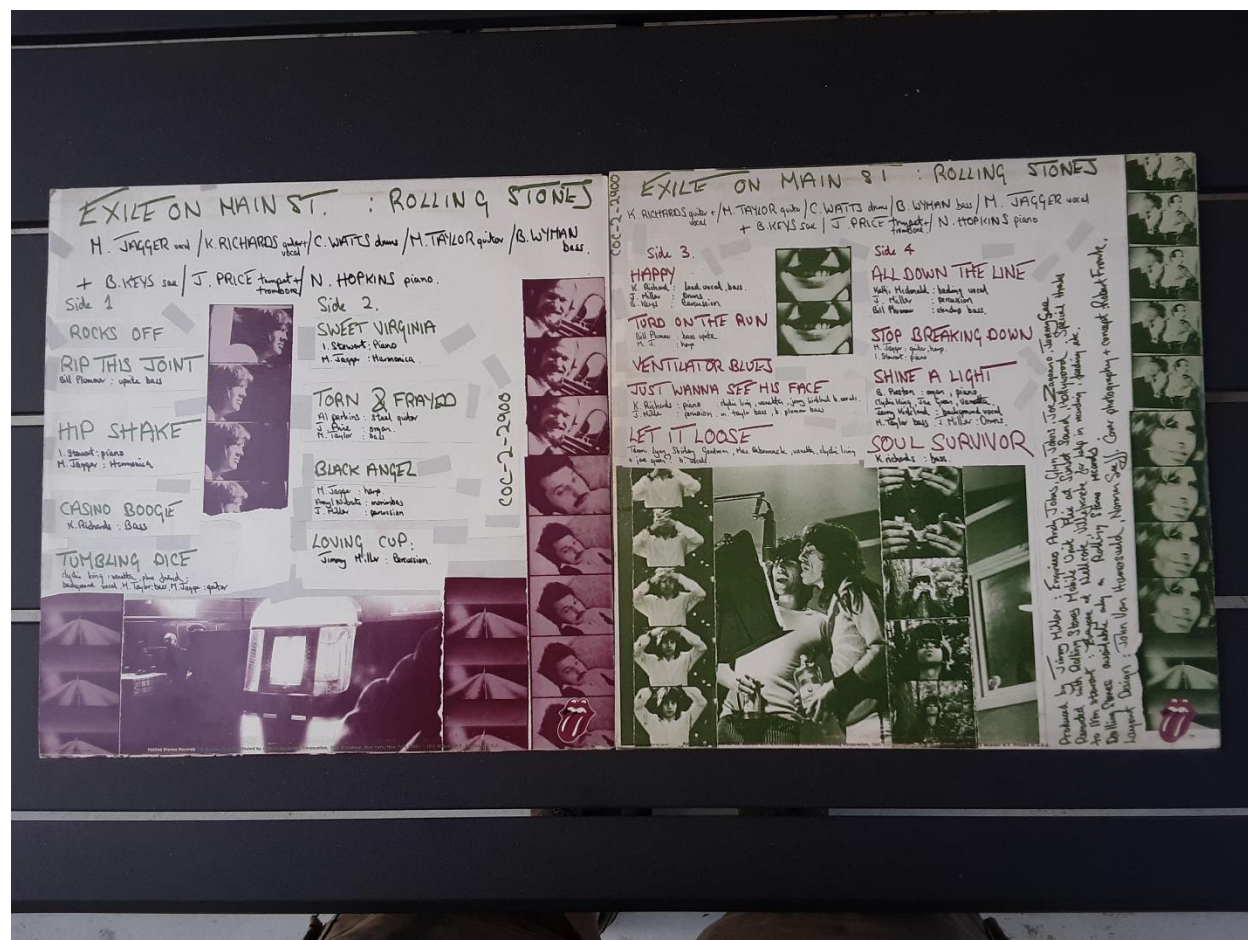 EXILE ON MAIN ST. : ROLLING STONES
M. JAGGER vocal / K. RICHARDS guitar + vocal / C. WATTS drums / M. TAYLOR guitar / B. WYMAN bass.
+ B. KEYS sax / J. PRICE trumpet + trombone / N. HOPKINS piano.
Side 1
ROCKS OFF
RIP THIS JOINT
Bill Plummer : upright bass
HIP SHAKE
I. Stewart : piano
M. Jagger : Harmonica
CASINO BOOGIE
K. Richards : Bass
TUMBLING DICE
clydie king, vanetta, plus friend :
background vocal. M. Taylor: bass, M. Jagger : guitar
Side 2.
SWEET VIRGINIA
I. Stewart : Piano
M. Jagger : Harmonica
TORN & FRAYED
Al perkins : steel guitar
J. Price : organ
M. Taylor : bass
BLACK ANGEL
M. Jagger : harp
Amyl Nitrate : marimbas
J. Miller : percussion
LOVING CUP.
Jimmy Miller : Percussion.
COC-2-2900
Rolling Stones Records
COC-2-2900
EXILE ON MAIN ST : ROLLING STONES
K. RICHARDS guitar + vocal / M. TAYLOR guitar / C. WATTS drums / B. WYMAN bass / M. JAGGER vocal
+ B. KEYS sax / J. PRICE trumpet + trombone / N. HOPKINS piano
Side 3.
HAPPY
K. Richard : lead vocal, bass.
J. Miller : Drums
B. Keys : Percussion.
TURD ON THE RUN
Bill Plummer : bass upright
M. J. : harp
VENTILATOR BLUES
JUST WANNA SEE HIS FACE
K. Richards : piano clydie king, vanetta, jerry kirkland b. vocals.
J. Miller : percussion m. taylor bass, b. plummer bass
LET IT LOOSE
Tami Lynn, Shirley Goodman, Mac Rebennack, vanetta, clydie king
+ joe green : b. vocals
Side 4
ALL DOWN THE LINE
Kathi Mcdonald : backing vocal
J. Miller : percussion
Bill Plummer : standup bass.
STOP BREAKING DOWN
M. Jagger : guitar, harp.
I. Stewart : piano
SHINE A LIGHT
B. Preston : organ, piano,
Clydie King, Joe Green, Vanetta
Jerry Kirkland : background vocal
M. Taylor bass J. Miller : Drums.
SOUL SURVIVOR
K. richards : bass
Produced by Jimmy Miller : Engineers Andy Johns, Glyn Johns, Joe Zagarino, Jeremy Gee.
Recorded with Rolling Stones Mobile Unit Mixed at Sunset Sound, hollywood Special thanks
to Ian Stewart :
Rolling Stones available only on Rolling Stones records. Cover photography + concept Robert Frank,
Layout Design : John Van Hamersveld, Norman Seeff.